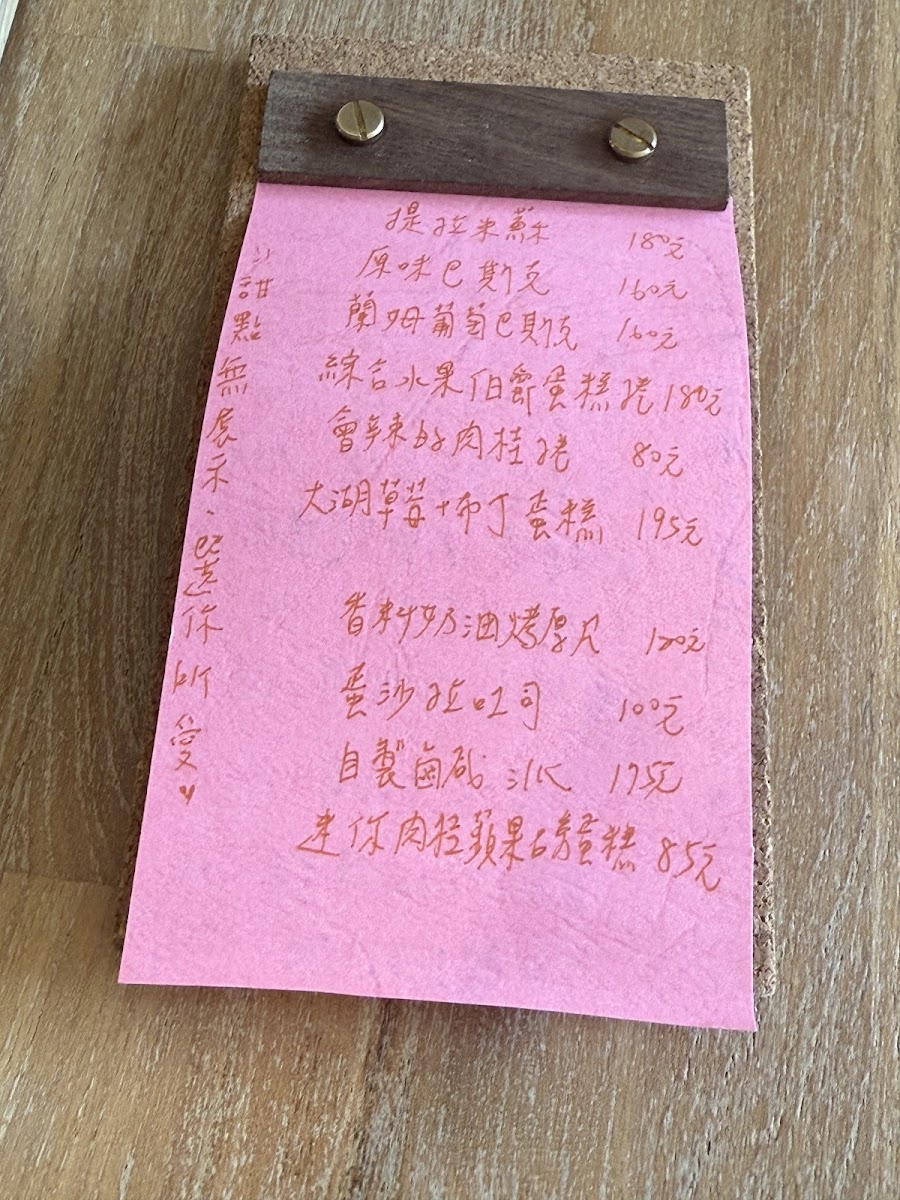 提拉米蘇 180元
原味巴斯克 160元
蘭姆葡萄巴斯克 160元
綜合水果伯爵蛋糕捲 180元
會辣的肉桂捲 80元
大湖草莓布丁蛋糕 195元
香料奶油烤厚片 120元
蛋沙拉吐司 100元
自製鹵咸派 175元
迷你肉桂蘋果磅蛋糕 85元
甜點無展示、選你所愛♥